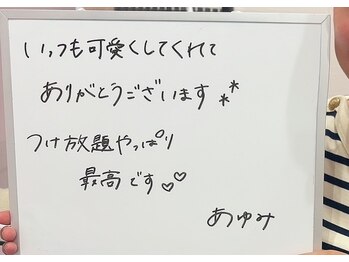 いつも可愛くしてくれて
ありがとうございます**
つけ放題やっぱり
最高です♡♡
あゆみ